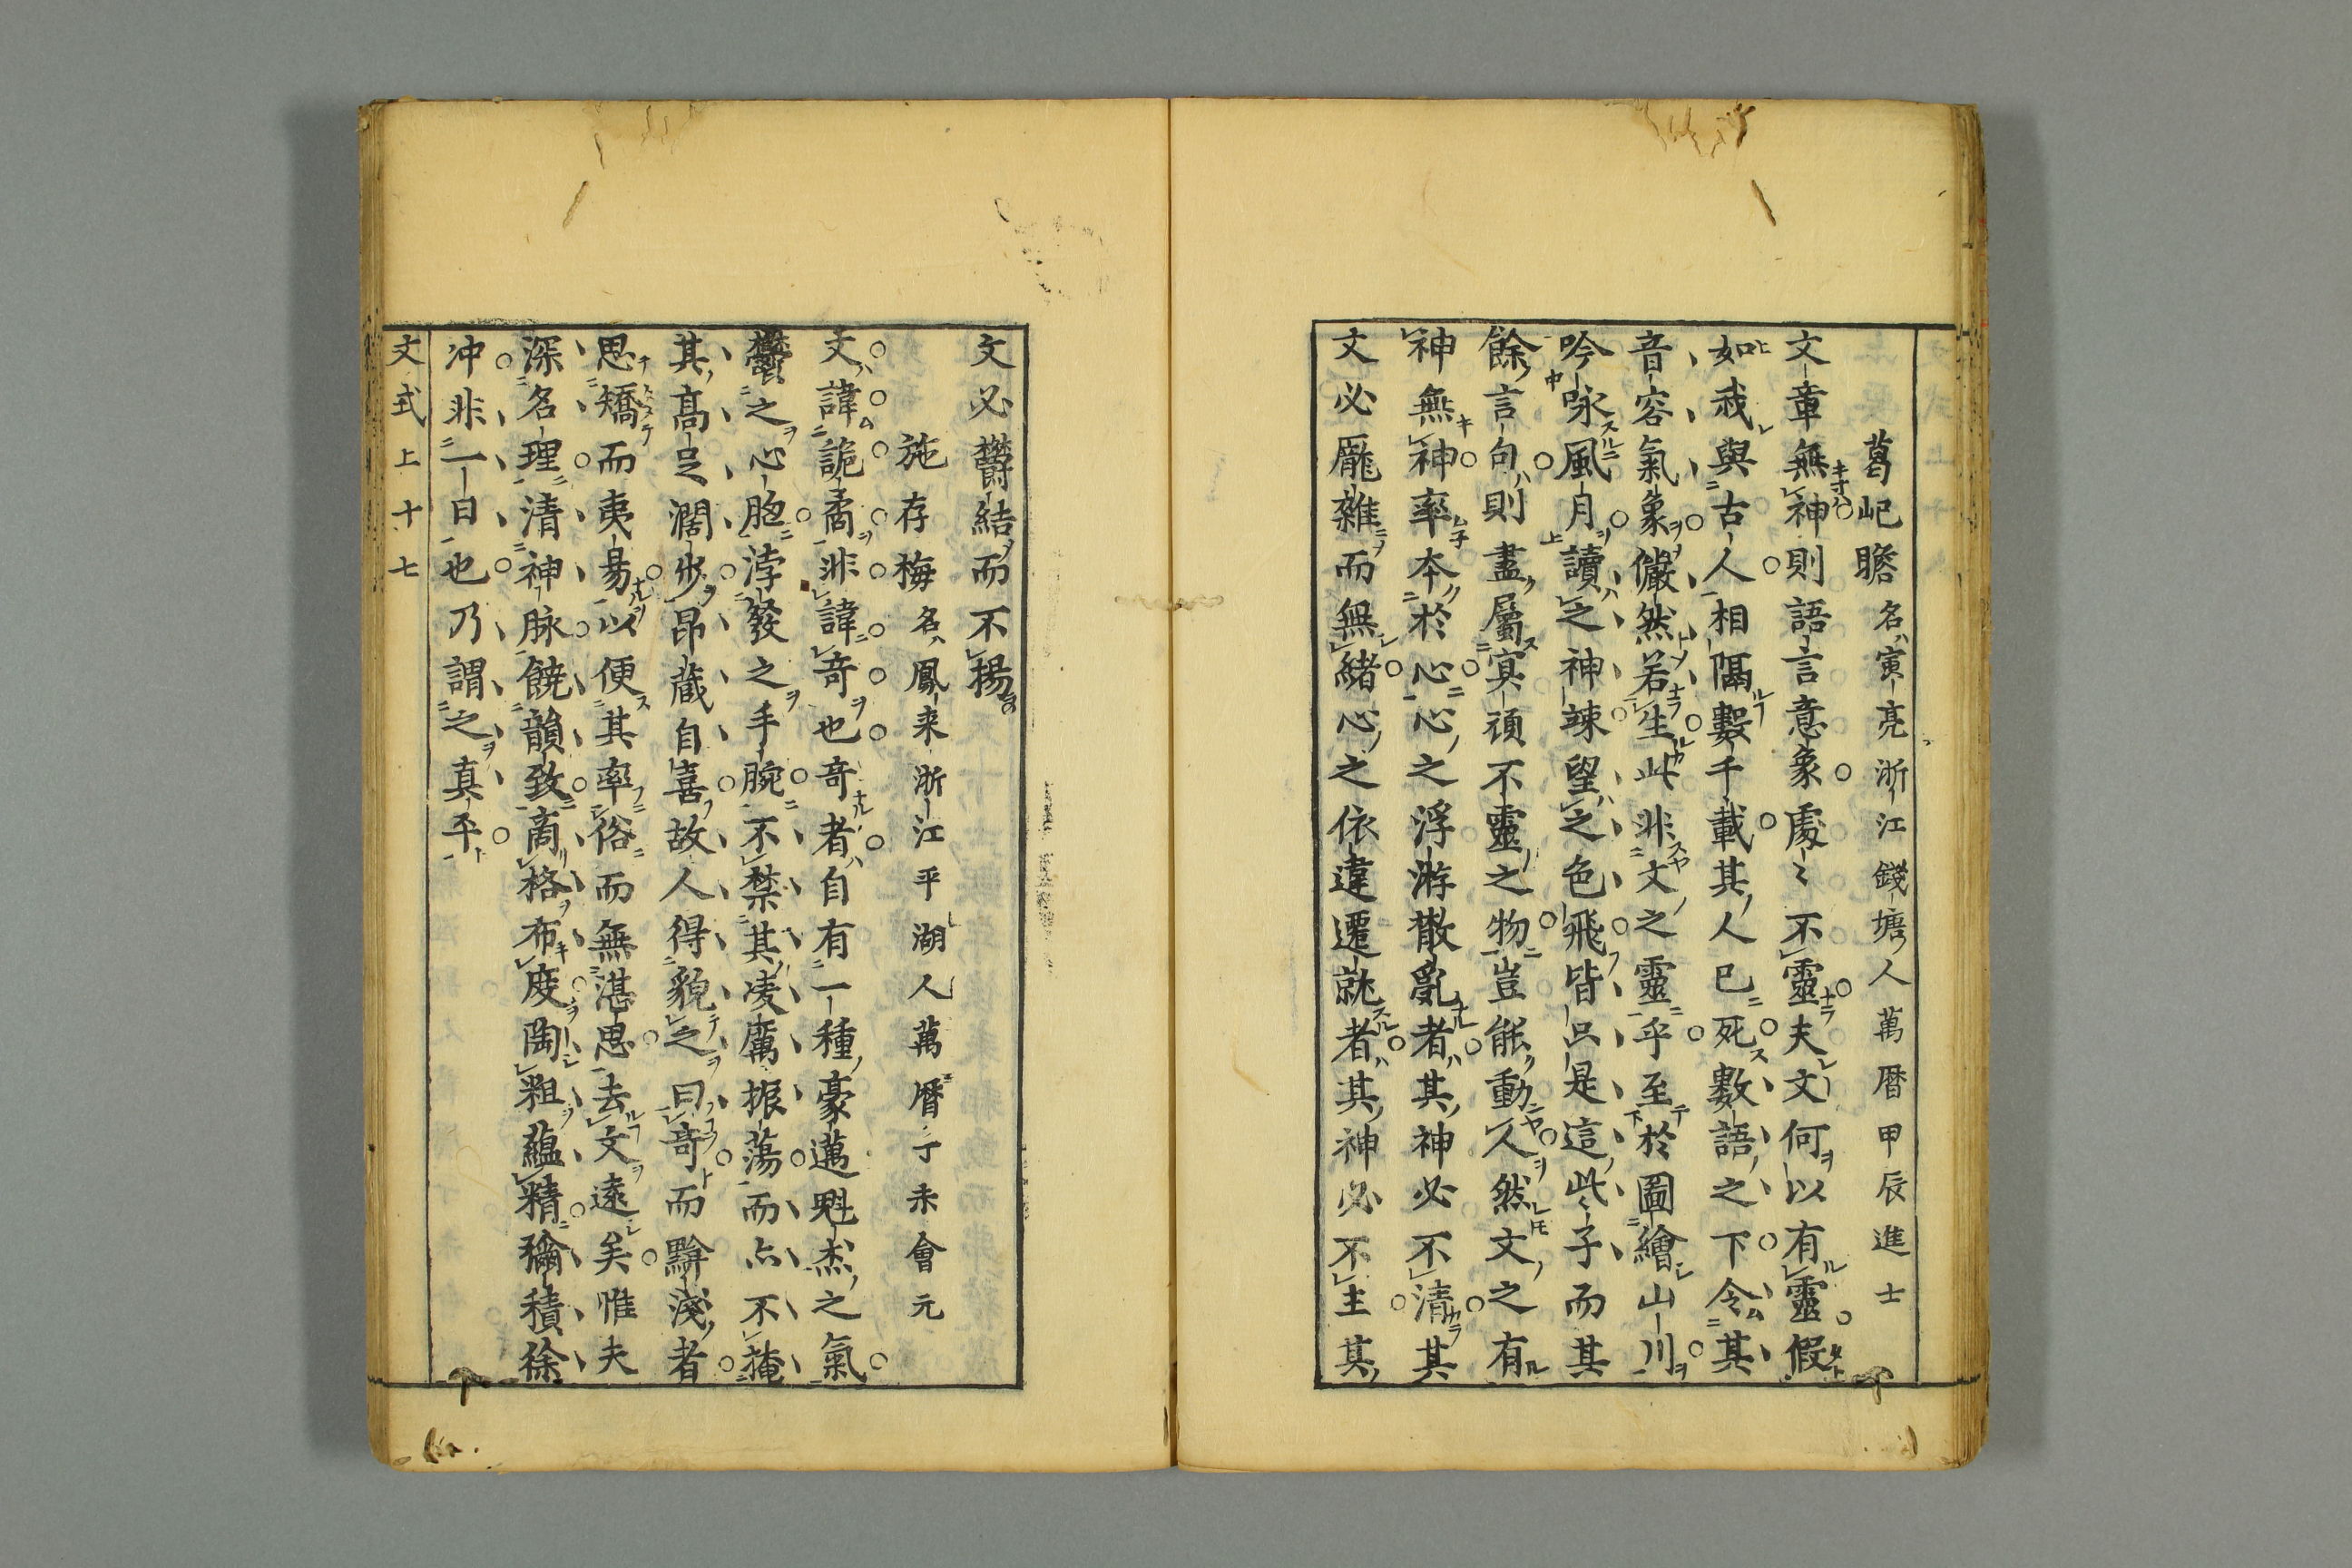 葛屺瞻名寅亮浙江錢塘人萬曆甲辰進士
文章無神則語言意象處〻不靈夫文何以有靈假
如我與古人相隔數千載其人已死數語之下令其
音容氣象儼然若生此非文之靈乎至於圖繪山川
吟咏風月讀之神竦望之色飛皆只是這些子而其
餘言句則盡屬冥頑不靈之物豈能動人然文之有
神無神率本於心心之浮游散亂者其神必不清其
文必厖雜而無緒心之依違遷就者其神必不主其
文必欝結而不揚
施存梅名鳳来浙江平湖人萬曆丁未會元
文諱詭矞非諱奇也奇者自有一種豪邁魁杰之氣
欝之心胞浡發之手腕不禁其凌厲振蕩而亦不掩
其高足濶步昂藏自喜故人得貌之曰奇而黯淺者
思矯而夷易以便其率俗而無湛思去文遠矣惟夫
深名理清神脉饒韻致商格布度陶粗蘊精彌積徐
冲非一日也乃謂之真平
文式上十七